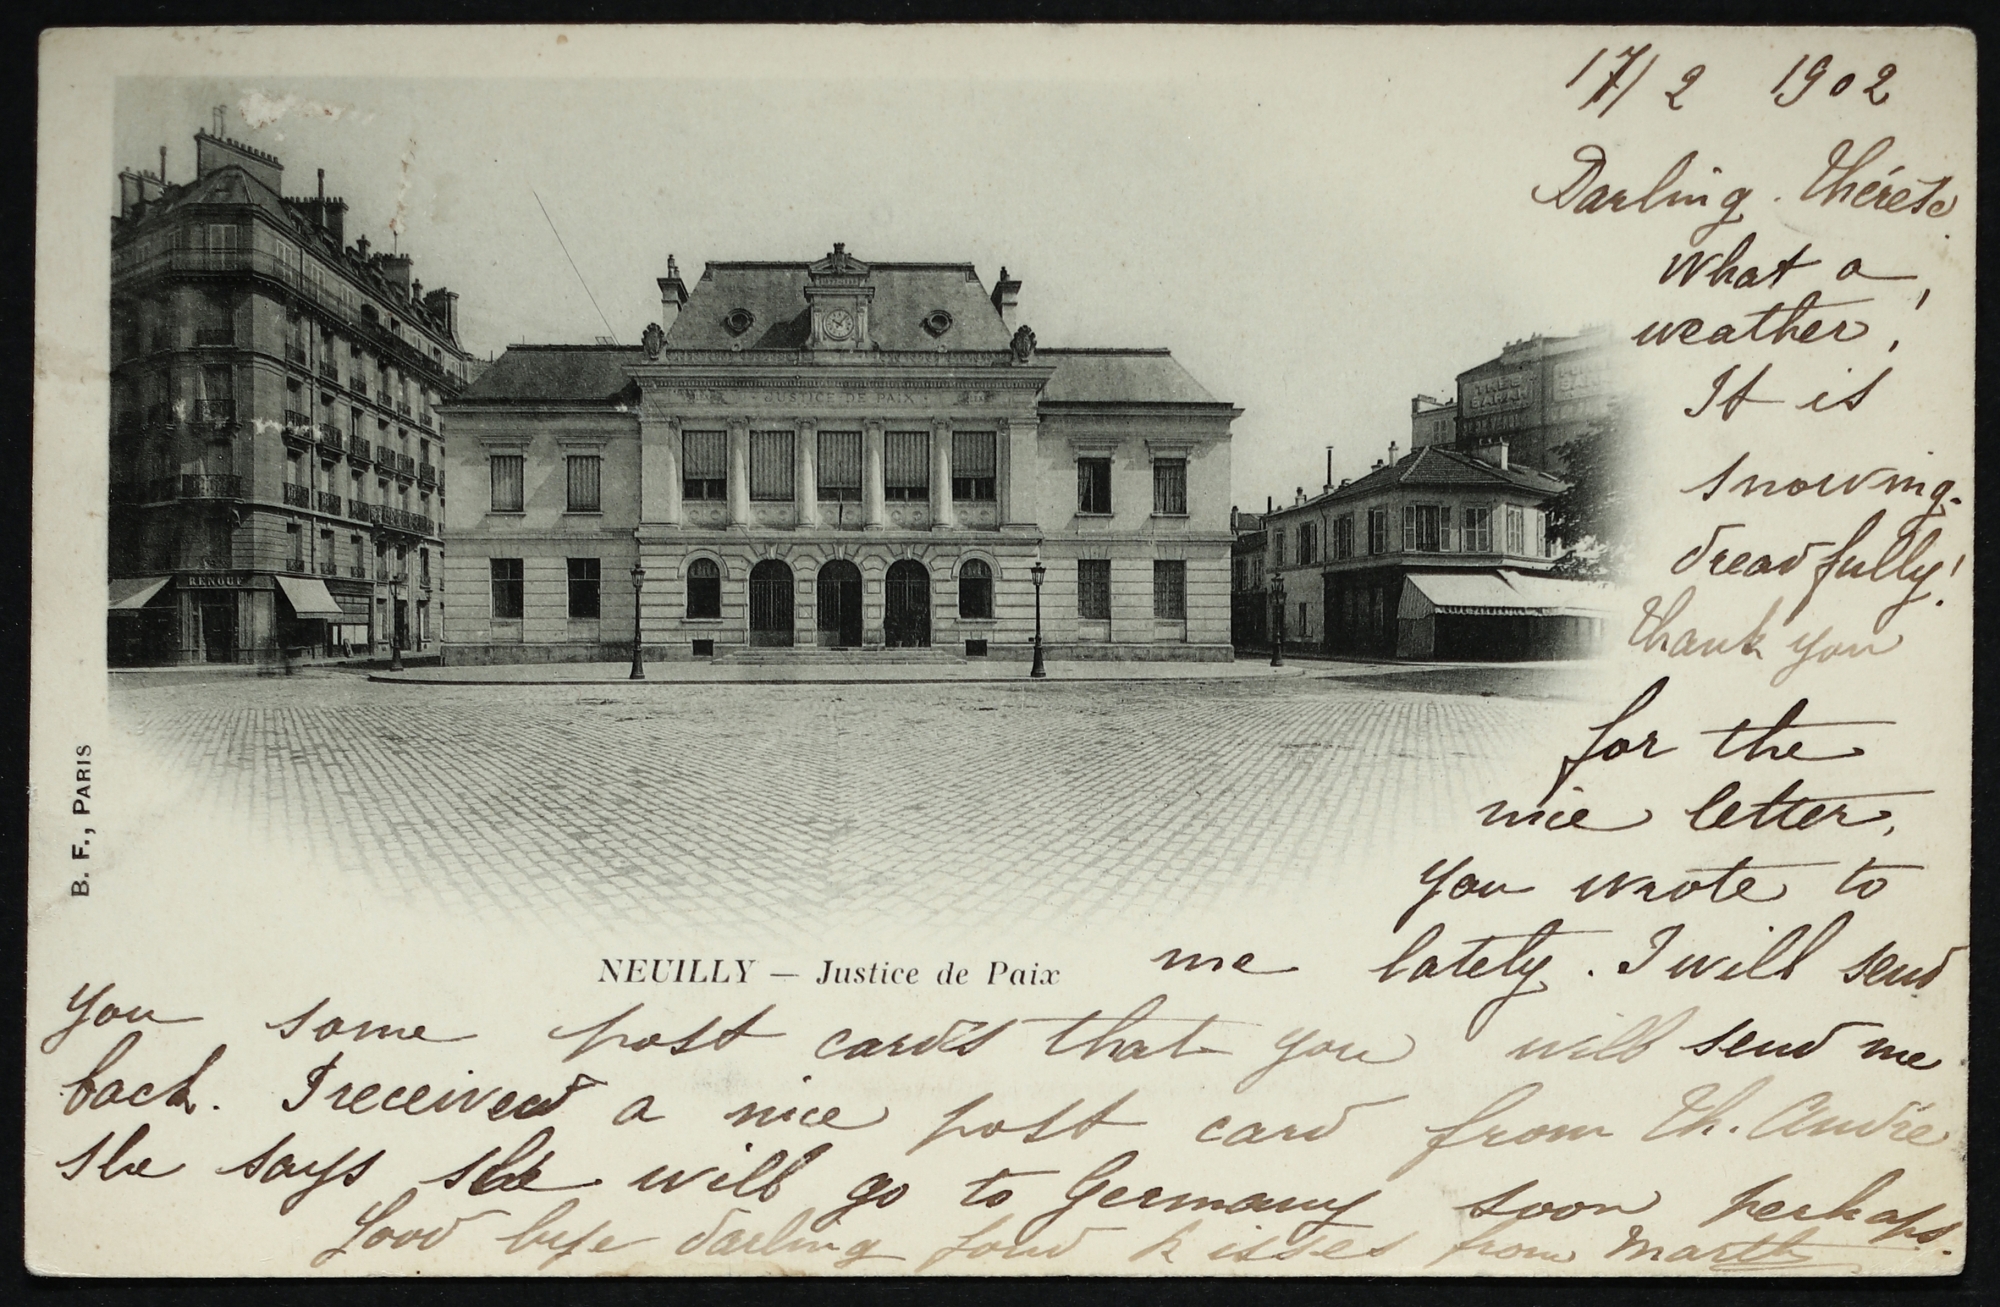 17/2 1902
Darling. Thérèse
what a
weather!
It is
snowing
dreadfully!
Thank you
for the
nice letter,
you wrote to
me lately. I will send
you some post cards that you will send me
back. I received a nice post card from Th. André
she says she will go to Germany soon perhaps.
Good bye darling fond kisses from Marth
NEUILLY — Justice de Paix
B. F., PARIS
JUSTICE DE PAIX
RENOUF